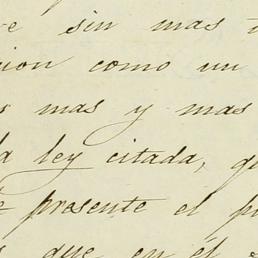 e sin mas
cion como un
mas y mas
la ley citada,
presente el
que en el